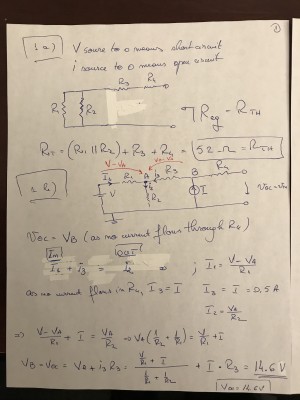 1 a) V source to 0 means short circuit
i source to 0 means open circuit
R3 R4
R1 R2 Req = RTH
RTH = (R1 || R2) + R3 + R4 = 52 Ω = RTH
1 b) V-VA VA-VB
R1 A R3 B R4
V R2 I VOC = VTH
VOC = VB (as no current flows through R4)
IN OUT
I1 + I3 = I2 ; I1 = V-VA / R1
as no current flows in R4, I3 = I I3 = I = 0,5 A
I2 = VA / R2
=> V-VA / R1 + I = VA / R2 => VA (1/R2 + 1/R1) = V/R1 + I
VB = VOC = VA + i3 R3 = V/R1 + I / 1/R1 + 1/R2 + I · R3 = 14.6 V
VOC = 14.6 V